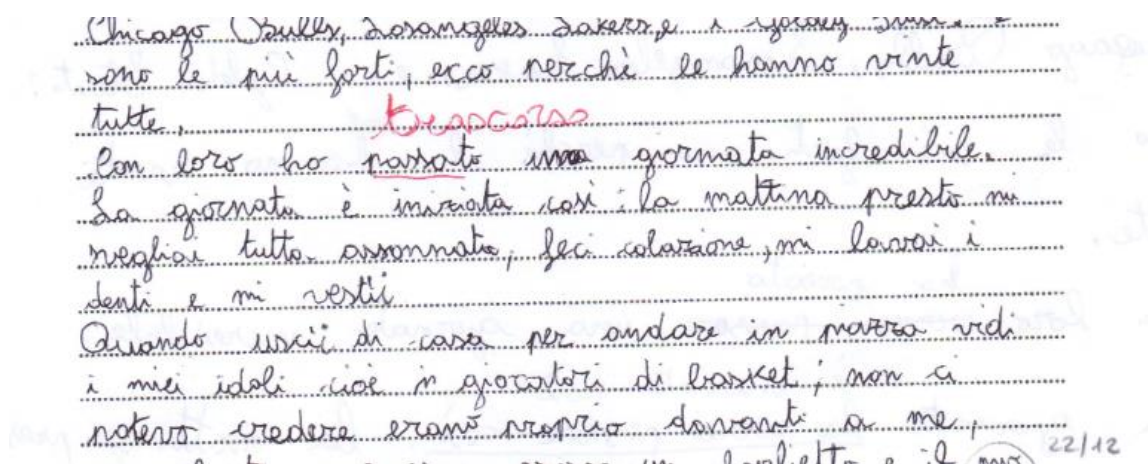 Chicago Bulls, Losangeles Lakers, e i
sono le più forti, ecco perchè le hanno vinte
tutte.
trascorso
Con loro ho passato una giornata incredibile.
La giornata è iniziata così: la mattina presto mi
svegliai tutta assonnata, feci colazione, mi lavai i
denti e mi vestii
Quando uscii di casa per andare in piazza vidi
i miei idoli cioè giocatori di basket; non ci
potevo credere erano proprio davanti a me,
un foglietto e il
22/12